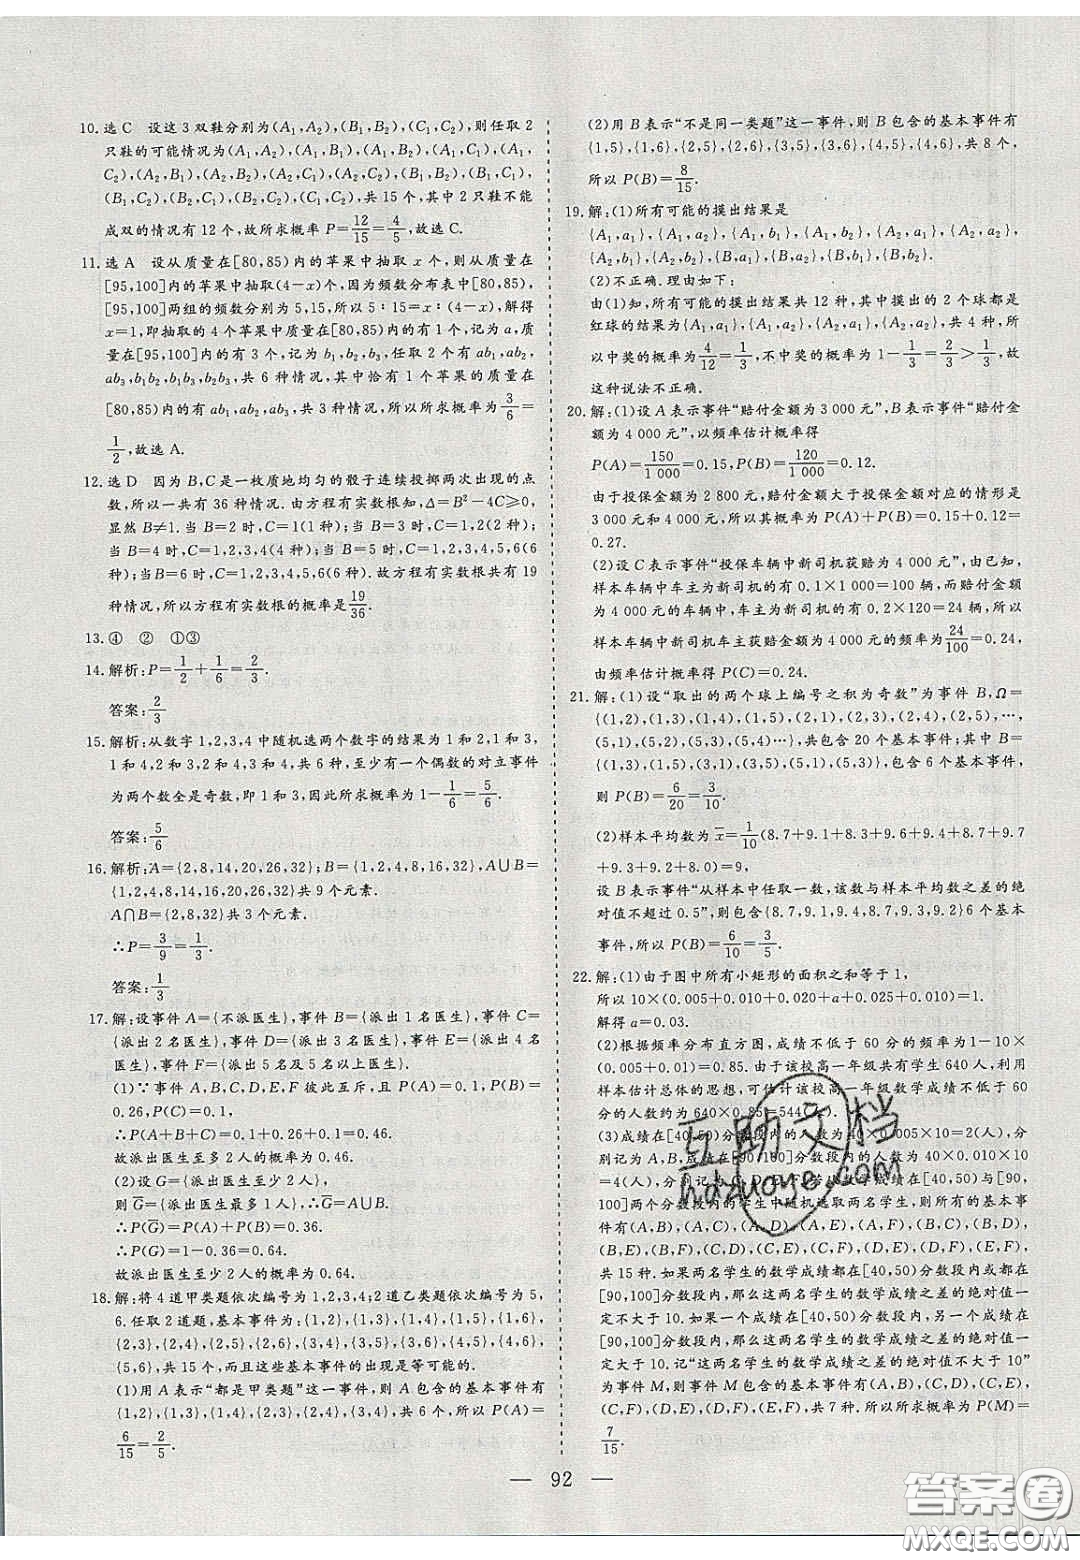 10. 选 C　设这 3 双鞋分别为(A₁,A₂),(B₁,B₂),(C₁,C₂),则任取 2
只鞋的可能情况为(A₁,A₂),(A₁,B₁),(A₁,B₂),(A₁,C₁),(A₁,
C₂),(A₂,B₁),(A₂,B₂),(A₂,C₁),(A₂,C₂),(B₁,B₂),(B₁,C₁),
(B₁,C₂),(B₂,C₁),(B₂,C₂),(C₁,C₂),共 15 种,其中 2 只鞋不能
成双的情况有 12 个,故所求概率 P=12/15=4/5,故选 C.
11. 选 A　设从质量在[80,85)内的苹果中抽取 x 个,则从质量在
[95,100]内的苹果中抽取(4-x)个,因为频数分布表中[80,85),
[95,100]两组的频数分别为 5,15,所以 5∶15=x∶(4-x),解得
x=1,即抽取的 4 个苹果中质量在[80,85)内的有 1 个,记为 a,质
量在[95,100]内的有 3 个,记为 b₁,b₂,b₃,任取 2 个有 ab₁,ab₂,
ab₃,b₁b₂,b₁b₃,b₂b₃,共 6 种情况,其中恰有 1 个苹果的质量在
[80,85)内的有 ab₁,ab₂,ab₃,共 3 种情况,所以所求概率为 3/6=
1/2,故选 A.
12. 选 D　因为 B,C 是一枚质地均匀的骰子连续投掷两次出现的点
数,所以一共有 36 种情况.由方程有实数根知,Δ=B²-4C≥0,
显然 B≠1.当 B=2 时,C=1(1 种);当 B=3 时,C=1,2(2 种);
当 B=4 时,C=1,2,3,4(4 种);当 B=5 时,C=1,2,3,4,5,6(6
种);当 B=6 时,C=1,2,3,4,5,6(6 种).故方程有实数根共有 19
种情况,所以方程有实数根的概率是19/36.
13. ④　②　①③
14. 解析:P=1/2+1/6=2/3.
答案:2/3
15. 解析:从数字 1,2,3,4 中随机选两个数字的结果为 1 和 2,1 和 3,
1 和 4,2 和 3,2 和 4,3 和 4,共 6 种,至少有一个偶数的对立事件
为两个数全是奇数,即 1 和 3,因此所求概率 1-1/6=5/6.
答案:5/6
16. 解析:A={2,8,14,20,26,32};B={1,2,4,8,16,32},A∪B=
{1,2,4,8,14,16,20,26,32}共 9 个元素.
A∩B={2,8,32}共 3 个元素.
∴P=3/9=1/3.
答案:1/3
17. 解:设事件 A={不派医生},事件 B={派出 1 名医生},事件 C=
{派出 2 名医生},事件 D={派出 3 名医生},事件 E={派出 4 名
医生},事件 F={派出 5 名及 5 名以上医生}.
(1)∵事件 A,B,C,D,E,F 彼此互斥,且 P(A)=0.1,P(B)=
0.26,P(C)=0.1,
∴P(A+B+C)=0.1+0.26+0.1=0.46.
故派出医生至多 2 人的概率为 0.46.
(2)设 G={派出医生至少 2 人},
则 G̅={派出医生最多 1 人},∴G̅=A∪B,
∴P(G̅)=P(A)+P(B)=0.36.
∴P(G)=1-0.36=0.64.
故派出医生至少 2 人的概率为 0.64.
18. 解:将 4 道甲类题依次编号为 1,2,3,4;2 道乙类题依次编号为 5,
6.任取 2 道题,基本事件为:{1,2},{1,3},{1,4},{1,5},{1,6},
{2,3},{2,4},{2,5},{2,6},{3,4},{3,5},{3,6},{4,5},{4,6},
{5,6},共 15 个,而且这些基本事件的出现是等可能的.
(1)用 A 表示“都是甲类题”这一事件,则 A 包含的基本事件有
{1,2},{1,3},{1,4},{2,3},{2,4},{3,4},共 6 个,所以 P(A)=
6/15=2/5.
(2)用 B 表示“不是同一类题”这一事件,则 B 包含的基本事件有
{1,5},{1,6},{2,5},{2,6},{3,5},{3,6},{4,5},{4,6},共 8 个,
所以 P(B)=8/15.
19. 解:(1)所有可能的摸出结果是
{A₁,a₁},{A₁,a₂},{A₁,b₁},{A₁,b₂},{A₂,a₁},{A₂,a₂},
{A₂,b₁},{A₂,b₂},{B,a₁},{B,a₂},{B,b₁},{B,b₂}.
(2)不正确.理由如下:
由(1)知,所有可能的摸出结果共 12 种,其中摸出的 2 个球都是
红球的结果为{A₁,a₁},{A₁,a₂},{A₂,a₁},{A₂,a₂},共 4 种,所
以中奖的概率为4/12=1/3,不中奖的概率为 1-1/3=2/3>1/3,故
这种说法不正确.
20. 解:(1)设 A 表示事件“赔付金额为 3 000 元”,B 表示事件“赔付金
额为 4 000 元”,以频率估计概率得
P(A)=150/1 000=0.15,P(B)=120/1 000=0.12.
由于投保金额为 2 800 元,赔付金额大于投保金额对应的情形是
3 000 元和 4 000 元,所以其概率为 P(A)+P(B)=0.15+0.12=
0.27.
(2)设 C 表示事件“投保车辆中新司机获赔 4 000 元”,由已知,
样本车辆中车主为新司机的有 0.1×1 000=100 辆,而赔付金额
为 4 000 元的车辆中,车主为新司机的有 0.2×120=24 辆,所以
样本车辆中新司机车主获赔金额为 4 000 元的频率为24/100=0.24,
由频率估计概率得 P(C)=0.24.
21. 解:(1)设“取出的两个球上编号之积为奇数”为事件 B,Ω=
{(1,2),(1,3),(1,4),(1,5),(2,1),(2,3),(2,4),(2,5),…,
(5,1),(5,2),(5,3),(5,4)},共包含 20 个基本事件;其中事件 B=
{(1,3),(1,5),(3,1),(3,5),(5,1),(5,3)},包含 6 个基本事件,
则 P(B)=6/20=3/10.
(2)样本平均数为 x̅=1/10(8.7+9.1+8.3+9.6+9.4+8.7+9.7
+9.3+9.2+8.0)=9,
设 B 表示事件“从样本中任取一数,该数与样本平均数之差的绝
对值不超过 0.5”,则包含{8.7,9.1,9.4,8.7,9.3,9.2}6 个基本
事件,所以 P(B)=6/10=3/5.
22. 解:(1)由于图中所有小矩形的面积之和等于 1,
所以 10×(0.005+0.010+0.020+a+0.025+0.010)=1.
解得 a=0.03.
(2)根据频率分布直方图,成绩不低于 60 分的频率为 1-10×
(0.005+0.01)=0.85.由于该校高一年级共有学生 640 人,利用
样本估计总体的思想,可估计该校高一年级数学成绩不低于 60
分的人数约为 640×0.85=544(人).
(3)成绩在[40,50)分数段内的人数为 40×0.005×10=2(人),分
别记为 A,B,成绩在[90,100]分数段内的人数为 40×0.010×10
=4(人),分别记为 C,D,E,F.若从数学成绩在[40,50)与[90,
100]两个分数段内的学生中随机选取两名学生,则所有的基本事
件有(A,B),(A,C),(A,D),(A,E),(A,F),(B,C),(B,D),
(B,E),(B,F),(C,D),(C,E),(C,F),(D,E),(D,F),(E,F),
共 15 种.如果两名学生的数学成绩都在[40,50)分数段内或都在
[90,100]分数段内,那么这两名学生的数学成绩之差的绝对值一
定不大于 10.如果一个成绩在[40,50)分数段内,另一个成绩在
[90,100]分数段内,那么这两名学生的数学成绩之差的绝对值一
定大于 10.记“这两名学生的数学成绩之差的绝对值不大于 10”
为事件 M,则事件 M 包含的基本事件有(A,B),(C,D),(C,E),
(C,F),(D,E),(D,F),(E,F),共 7 种.所以所求概率为 P(M)=
7/15.
— 92 —
互助文档
hdzuoye.com
答案圈
MXQE.COM